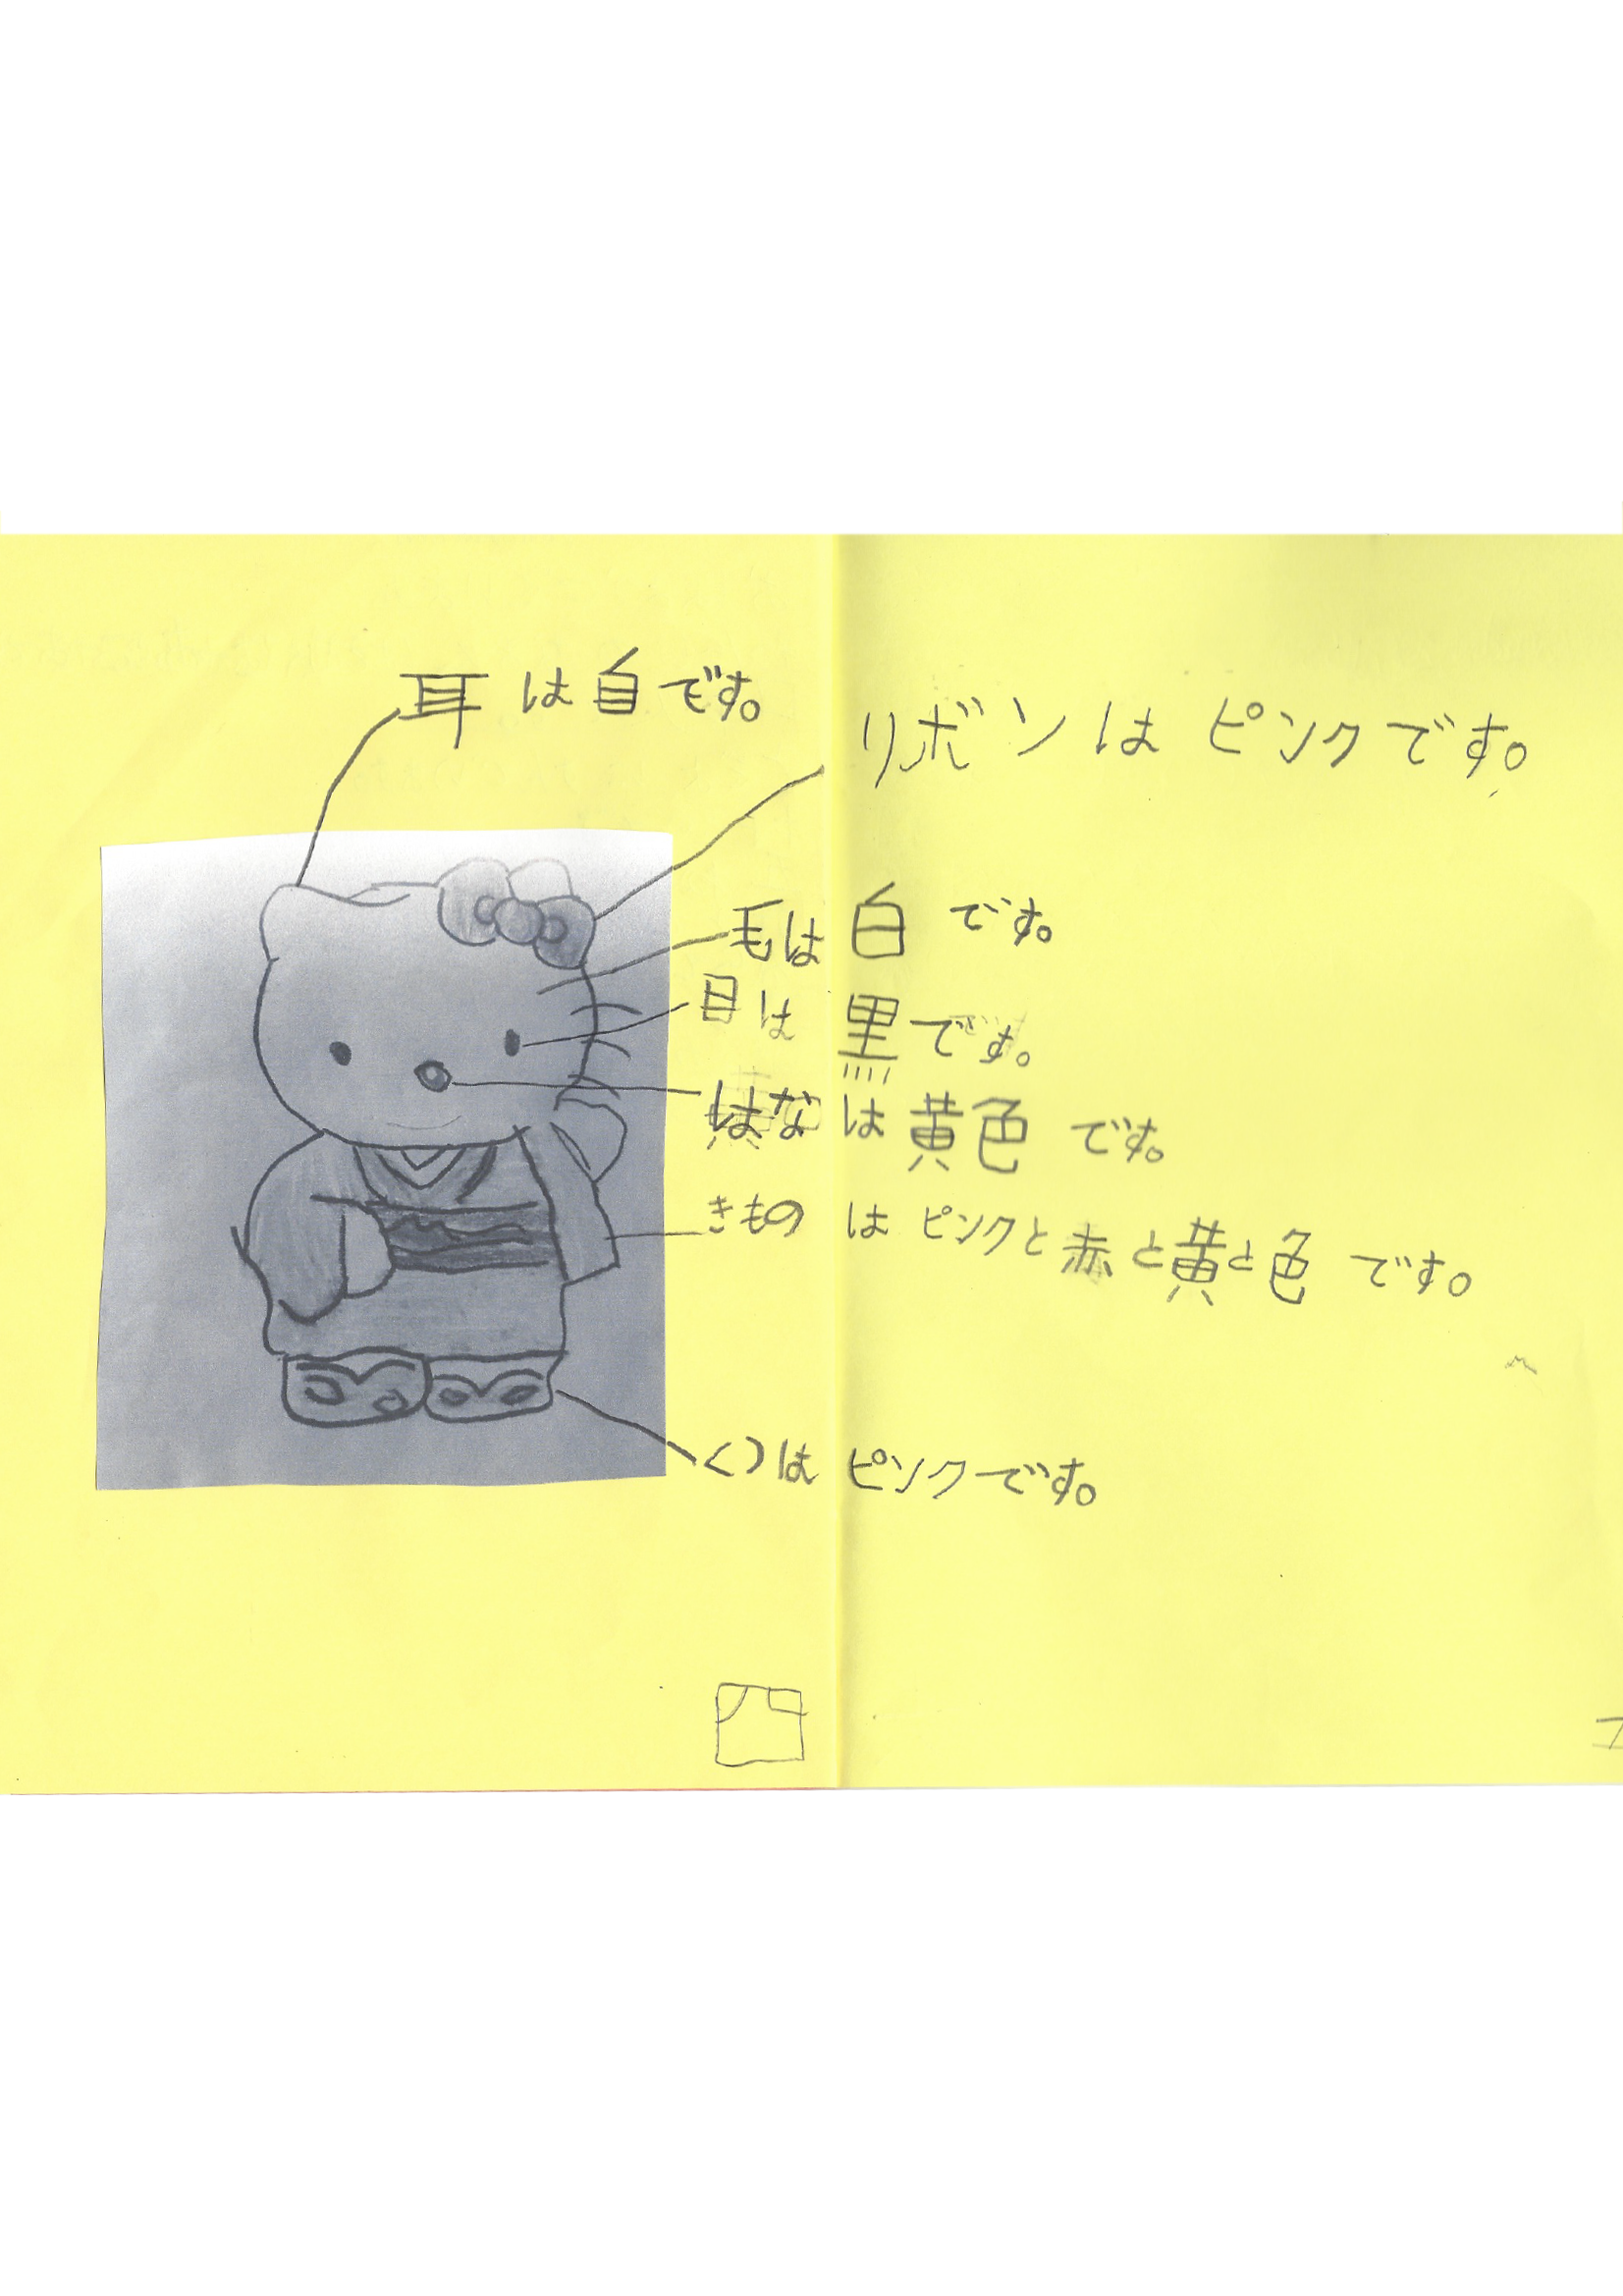 耳は自です。
リボンはピンクです。
毛は白です。
目は黒です。
はなは黄色です。
きものはピンクと赤と黄と色です。
くつはピンクです。